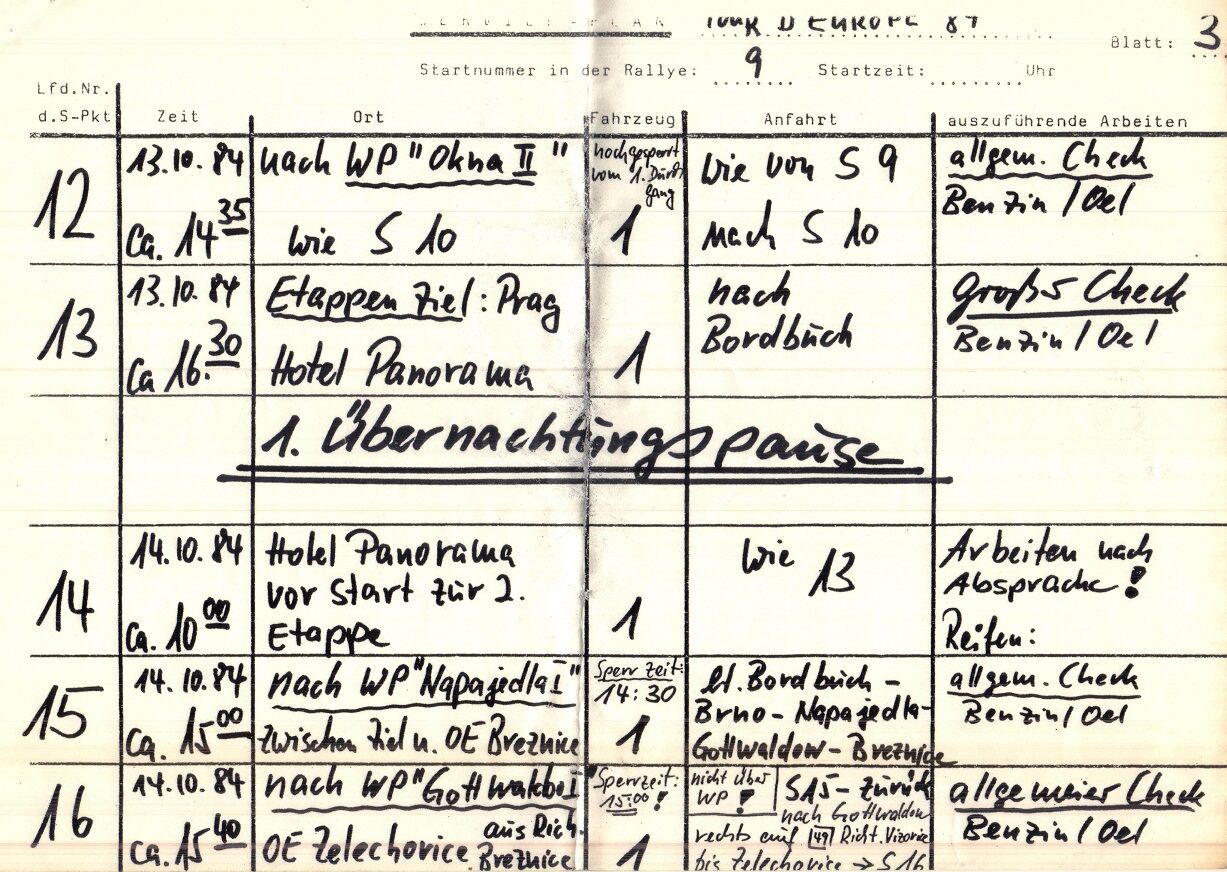 SERVICE-PLAN TOUR D'EUROPE 84
Blatt: 3
Startnummer in der Rallye: 9 Startzeit: ........ Uhr
Lfd.Nr.
d.S-Pkt Zeit Ort Fahrzeug Anfahrt auszuführende Arbeiten
12
13.10.84
ca. 14 35
nach WP "Okna II"
wie S 10
noch gesperrt
vom 1. Durch
gang
1
wie von S 9
nach S 10
allgem. Check
Benzin / Oel
13
13.10.84
ca 16.30
Etappen Ziel: Prag
Hotel Panorama
1
nach
Bordbuch
großer Check
Benzin / Oel
1. Übernachtungspause
14
14.10.84
ca. 10 00
Hotel Panorama
vor Start zur 2.
Etappe
1
wie 13
Arbeiten nach
Absprache!
Reifen:
15
14.10.84
ca. 15 00
nach WP "Napajedla I"
zwischen Ziel u. OE Breznice
Sperrzeit:
14:30
1
lt. Bordbuch -
Brno - Napajedla -
Gottwaldow - Breznice
allgem. Check
Benzin / Oel
16
14.10.84
ca. 15 40
nach WP "Gottwaldow I"
OE Zelechovice aus Rich.
Breznice
Sperrzeit:
15:00!
1
nicht über
WP!
S15 - zurück
nach Gottwaldow
rechts auf 49 Richt. Vizovice
bis Zelechovice → S 16
allgemeier Check
Benzin / Oel